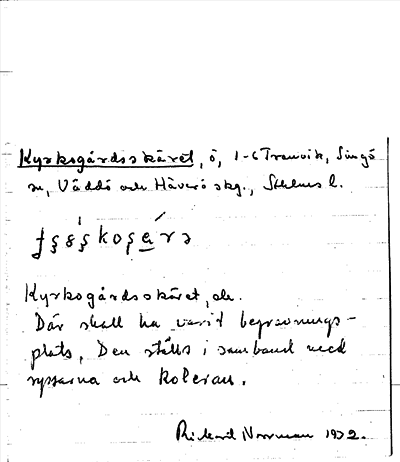 Kyrkogårdsskäret, ö, 1-6 Tranvik, Singö
sn, Väddö och Häverö skg., Sthlms l.
Kyrkogårdsskäret, ö.
Där skall ha varit begravnings-
plats. Den ställs i samband med
ryssarna och koleran.
Rickard Norrman 1932.